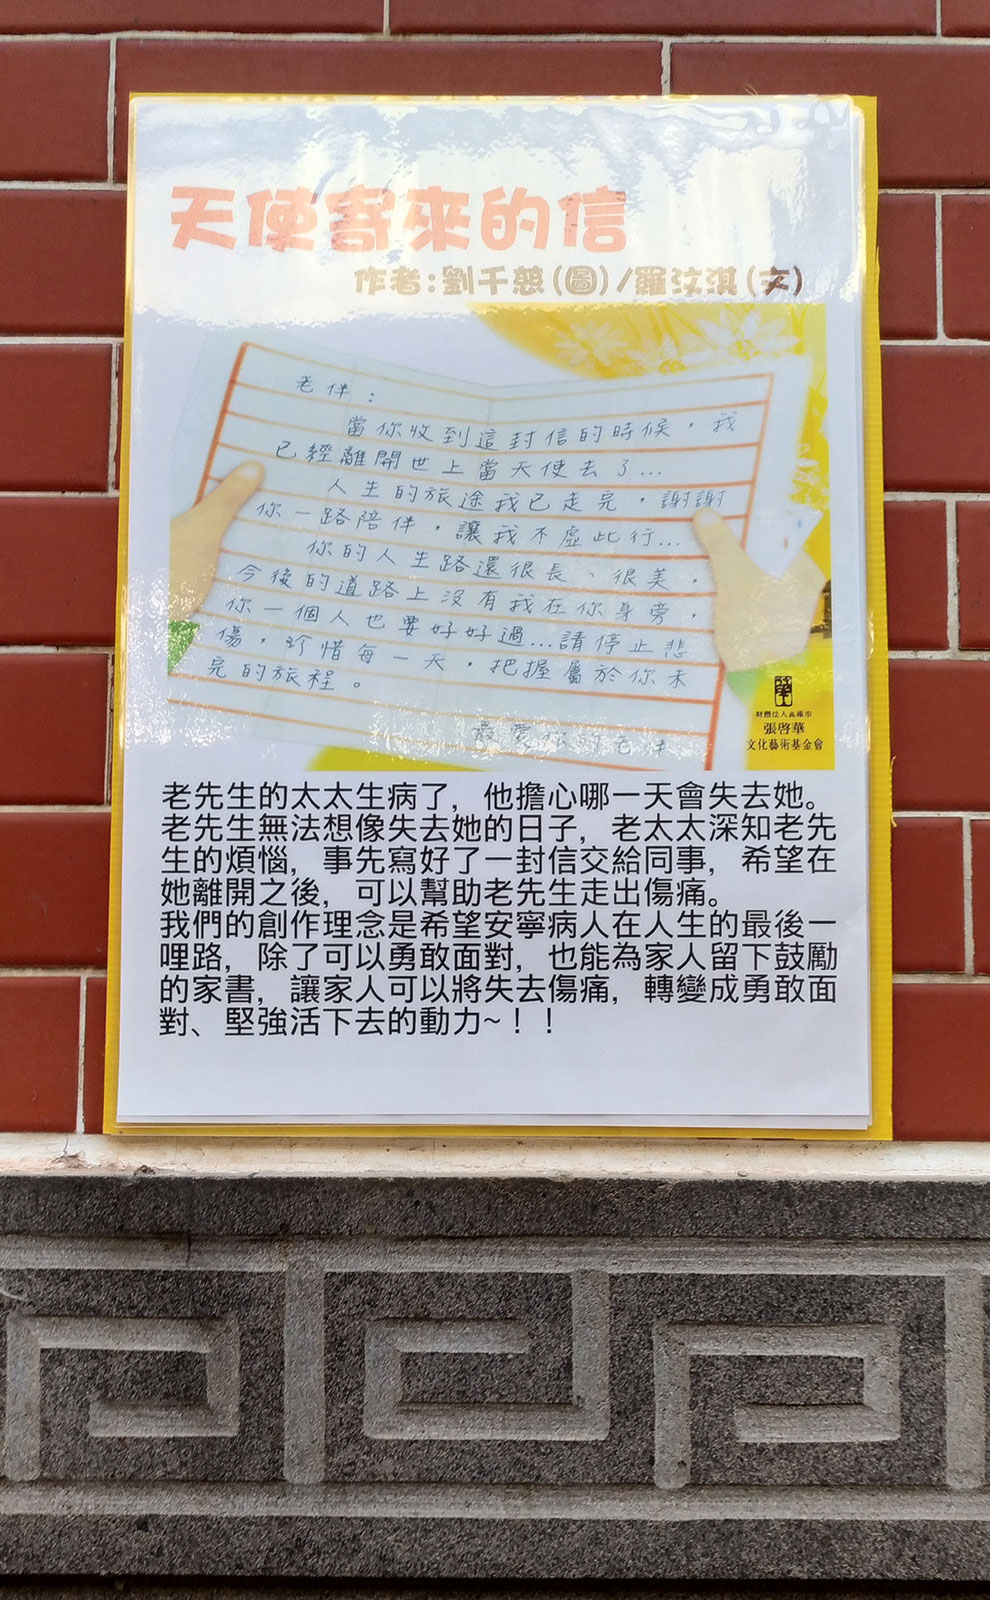 天使寄來的信
作者:劉千慈(圖)/羅汶淇(文)
老伴：
當你收到這封信的時候，我
已經離開世上當天使去了...
人生的旅途我已走完，謝謝
你一路陪伴，讓我不虛此行...
你的人生路還很長、很美，
今後的道路上沒有我在你身旁，
你一個人也要好好過...請停止悲
傷，珍惜每一天，把握屬於你未
完的旅程。
最愛你的老伴
財團法人高雄市
張啓華
文化藝術基金會
老先生的太太生病了，他擔心哪一天會失去她。
老先生無法想像失去她的日子，老太太深知老先
生的煩惱，事先寫好了一封信交給同事，希望在
她離開之後，可以幫助老先生走出傷痛。
我們的創作理念是希望安寧病人在人生的最後一
哩路，除了可以勇敢面對，也能為家人留下鼓勵
的家書，讓家人可以將失去傷痛，轉變成勇敢面
對、堅強活下去的動力~！！